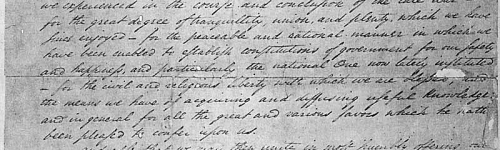 we experienced in the course and conclusion of the late war —
for the great degree of tranquility, union, and plenty, which we have
since enjoyed — for the peaceable and rational manner in which we
have been enabled to establish constitutions of government for our safety
and happiness, and particularly the national One now lately instituted
— for the civil and religious liberty with which we are blessed, and
the means we have of acquiring and diffusing useful knowledge
and in general for all the great and various favors which he hath
been pleased to confer upon us.
that we may then unite in most humbly offering our